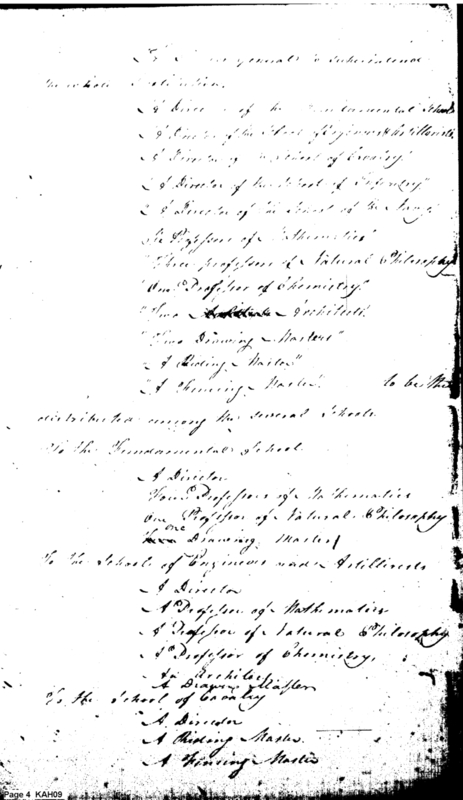 generals to superintend
the whole Institution.
A Director of the Fundamental School
A Director of the School of Engineers & Artillerists
A Director of the School of Cavalry
"A Director of the School of Infantry"
"A Director of the School of the Navy
Six Professors of Mathematics"
"Three professors of Natural Philosophy
"One Professor of Chemistry"
"Two Architects"
"Two Drawing Masters"
"A Riding Master"
"A Fencing Master". to be thus
distributed among the several Schools
To the Fundamental School
A Director
Four Professors of Mathematics
One Professor of Natural Philosophy
one Drawing Master
To the School of Engineers and Artillerists
A Director
A Professor of Mathematics
A Professor of Natural Philosophy
A Professor of Chemistry,
An Architect
A Drawing Master
To the School of Cavalry
A Director
A Riding Master
A Fencing Master
Page 4 KAH09